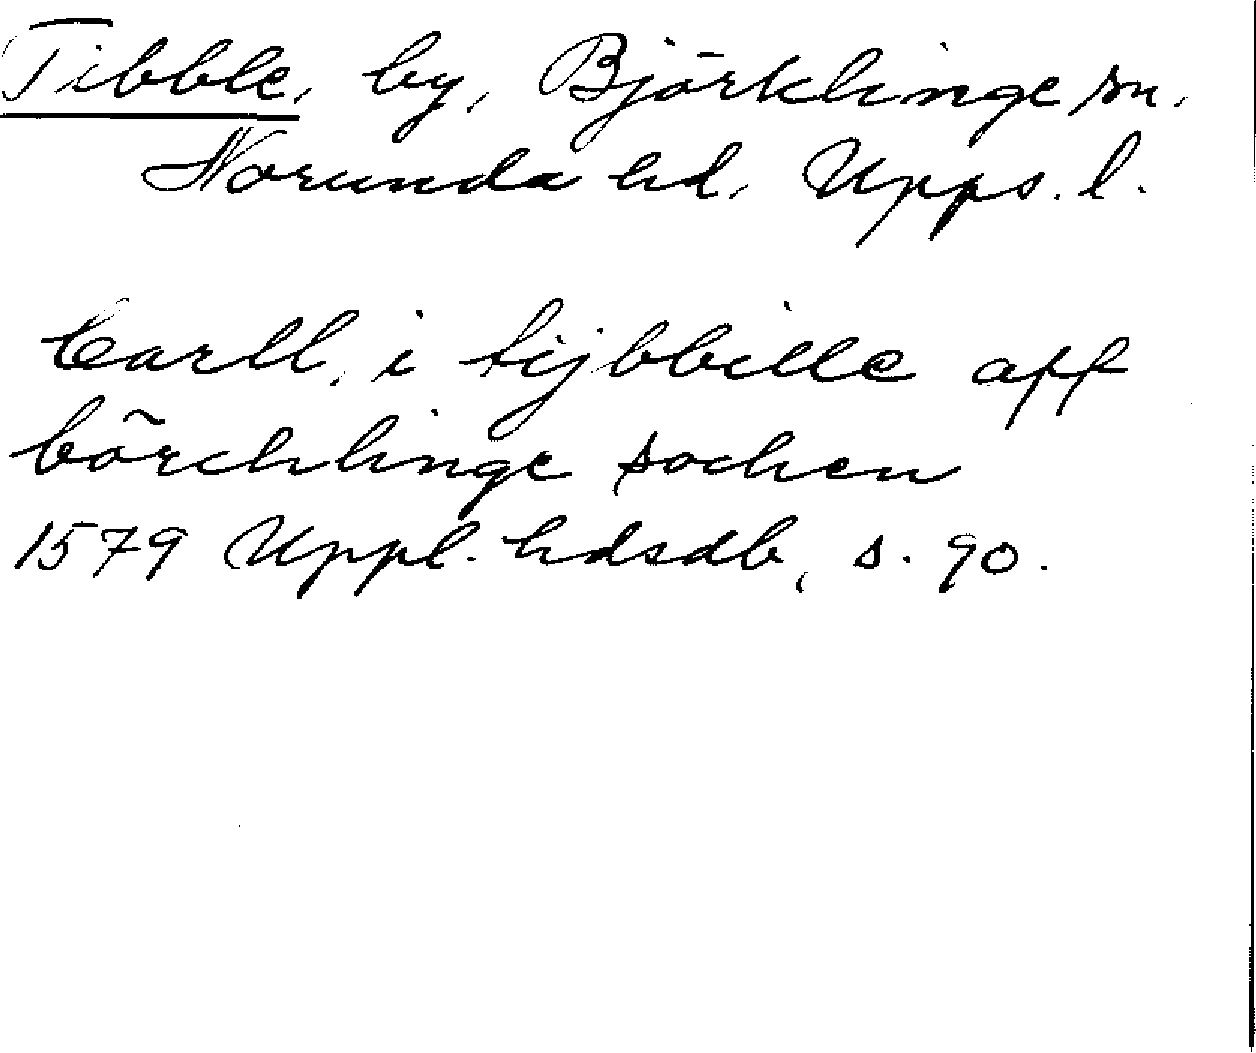 Tibble, by, Björklinge sn.
Norunda hd. Upps. l.
Carll. i tijbbille aff
börchlinge sochen
1579 Uppl. hdsdb, s. 90.